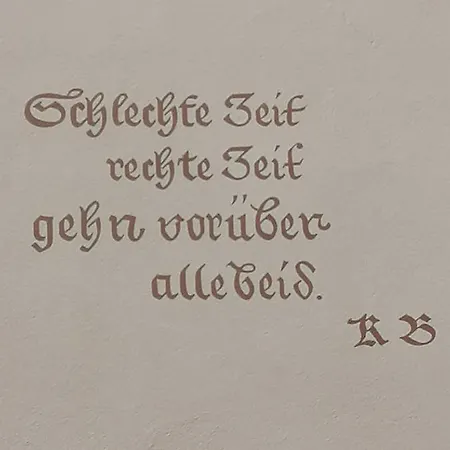 Schlechte Zeit
rechte Zeit
gehn vorüber
allebeid.
K B